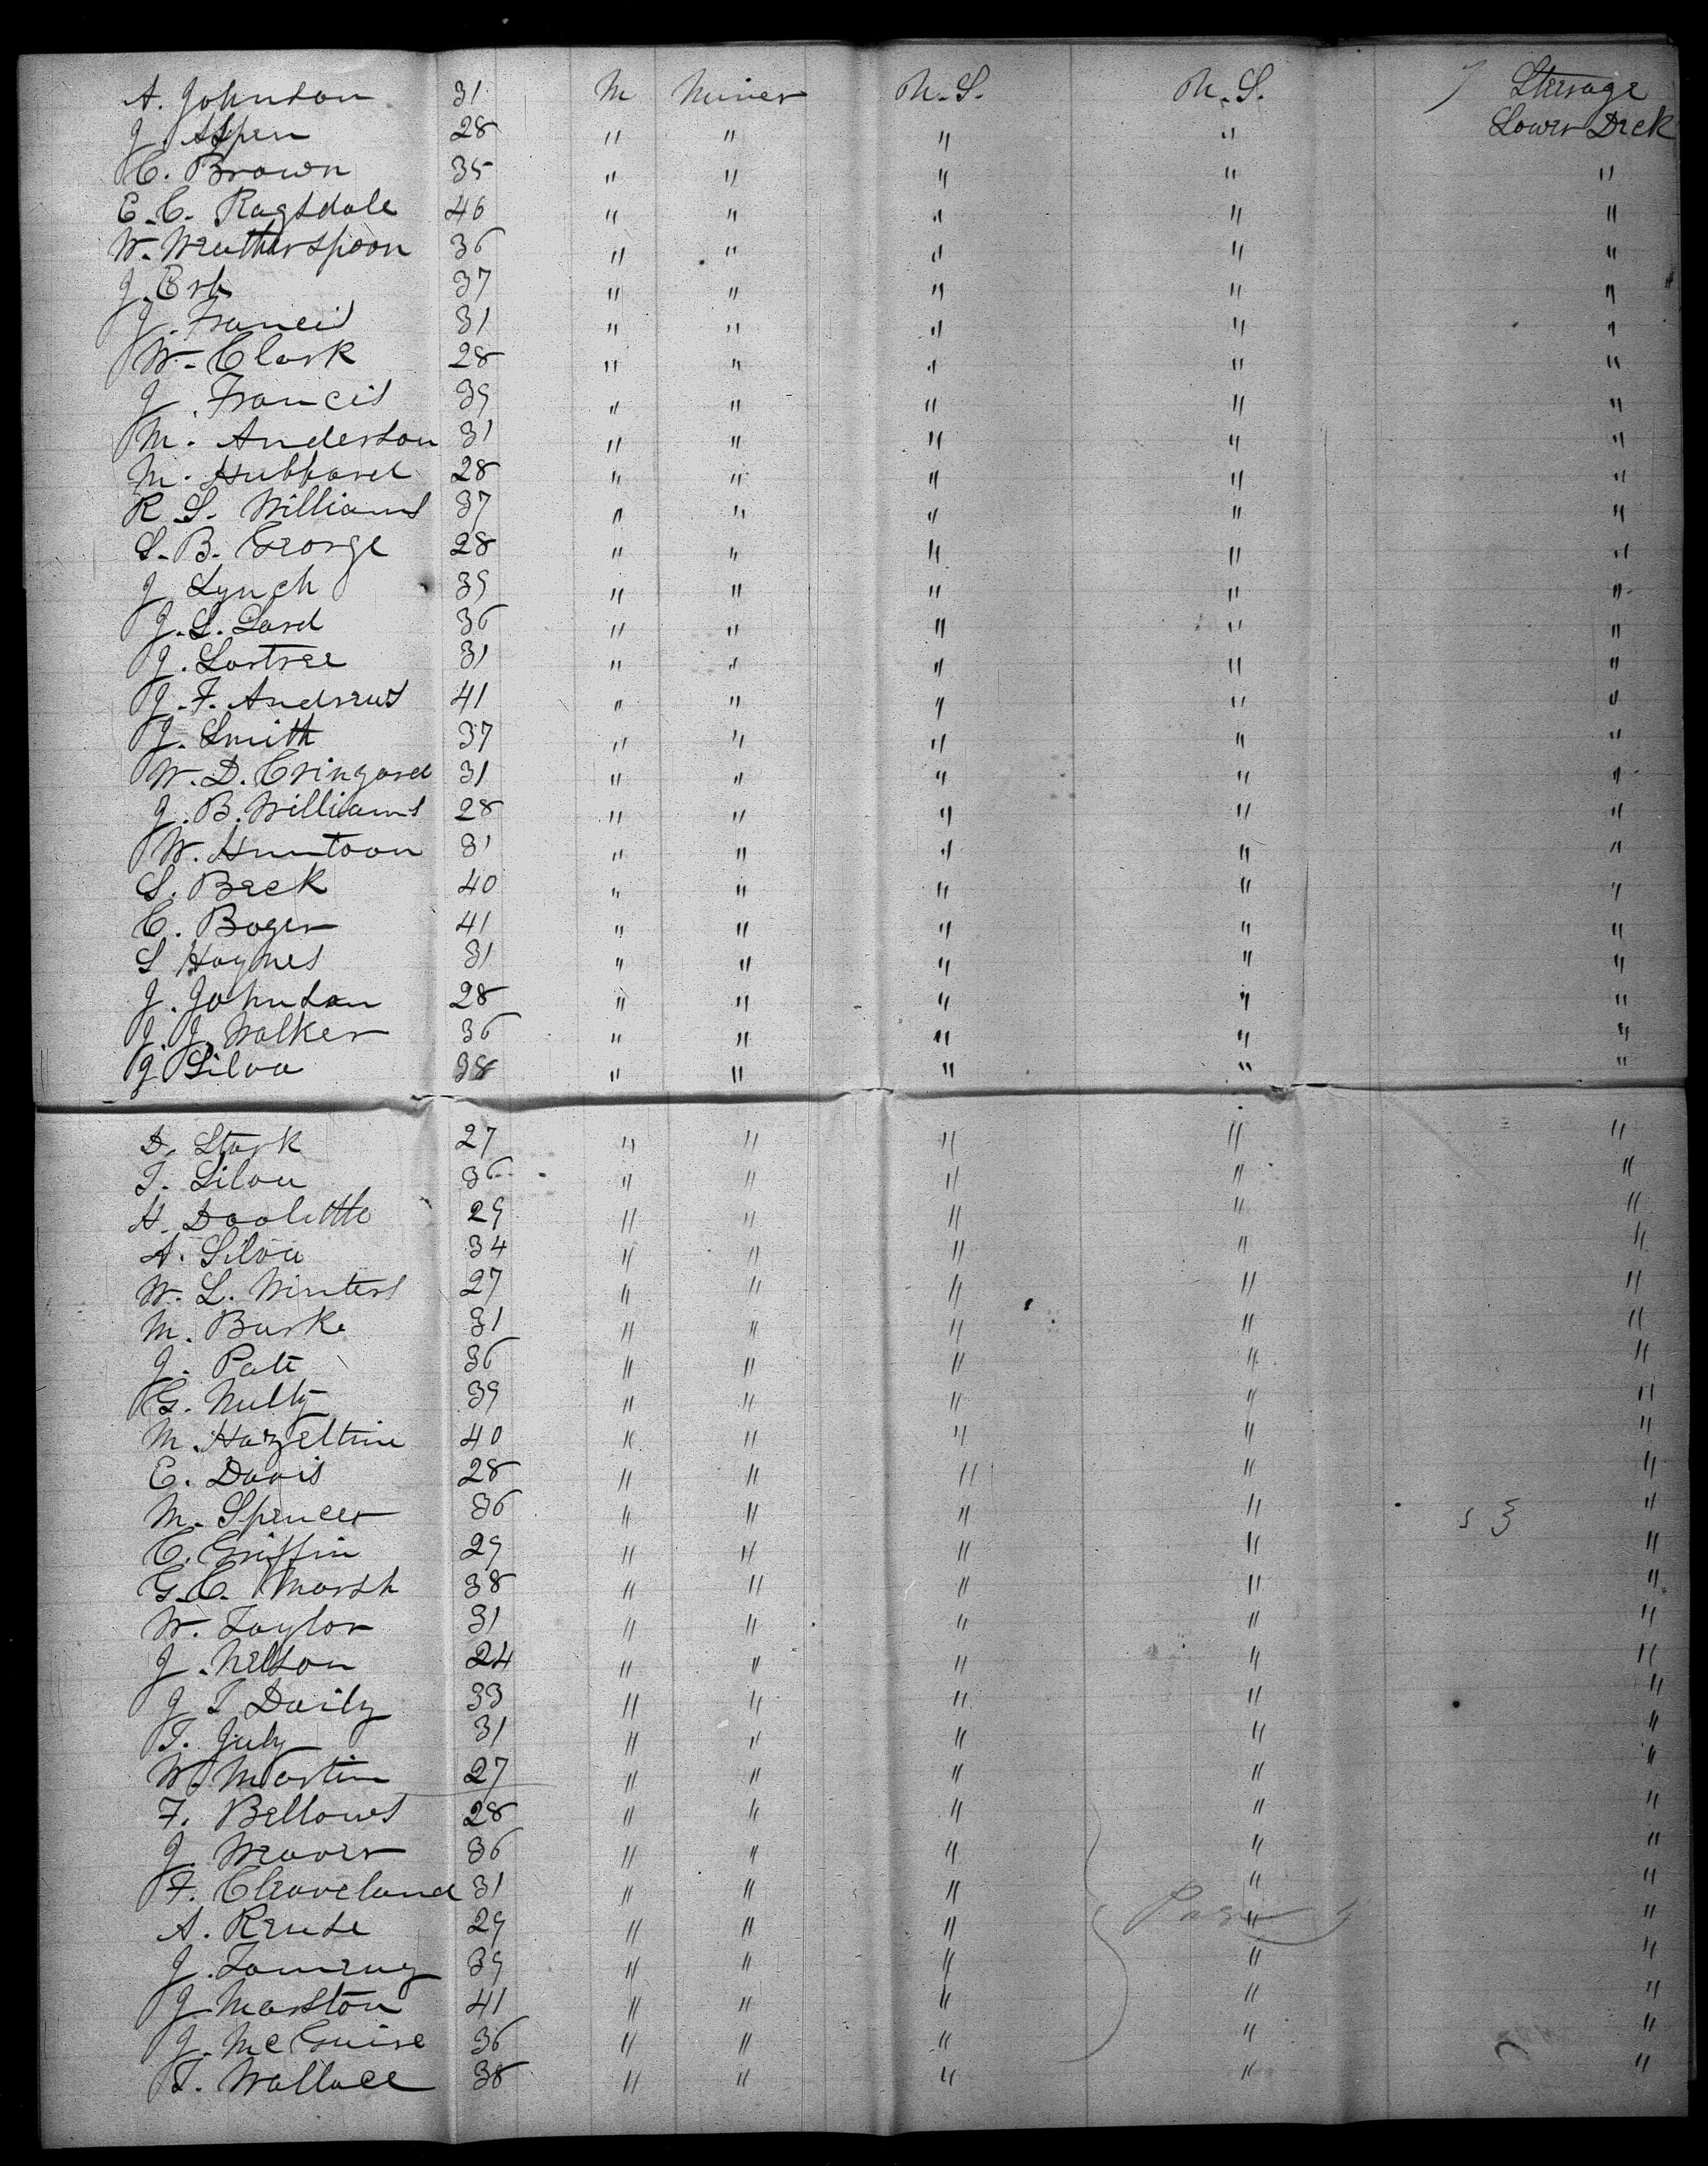 A. Johnson 31 M Miner U.S. U.S. Sterage
J. Aspen 28 " " " " Lower Deck
C. Brown 35 " " " " "
E. C. Ragsdale 46 " " " " "
W. Weutherspoon 36 " " " " "
J. Erb 37 " " " " "
J. Francis 31 " " " " "
W. Clark 28 " " " " "
J. Francis 39 " " " " "
M. Anderson 31 " " " " "
M. Hubbard 28 " " " " "
R. S. Williams 37 " " " " "
S. B. George 28 " " " " "
J. Lynch 39 " " " " "
J. L. Lard 36 " " " " "
J. Lartree 31 " " " " "
J. F. Andrews 41 " " " " "
J. Smith 37 " " " " "
W. D. Cringard 31 " " " " "
J. B. Williams 28 " " " " "
W. Huntoon 31 " " " " "
S. Beck 40 " " " " "
C. Boger 41 " " " " "
S Haynes 31 " " " " "
J. Johnson 28 " " " " "
J. J. Walker 36 " " " " "
J Silva 38 " " " " "
D. Stark 27 " " " " "
T. Silva 36 " " " " "
H. Doolittle 29 " " " " "
A. Silva 34 " " " " "
W. L. Winters 27 " " " " "
M. Burke 31 " " " " "
J. Pate 36 " " " " "
G. Nulty 39 " " " " "
M. Hazeltine 40 " " " " "
E. Davis 28 " " " " "
M. Spencer 36 " " " " "
C. Griffin 29 " " " " "
G. C. Marsh 38 " " " " "
W. Taylor 31 " " " " "
J. Nelson 24 " " " " "
J T Daily 33 " " " " "
T. July 31 " " " " "
W. Martin 27 " " " " "
F. Bellows 28 " " " " "
J. Weaver 36 " " " " "
F. Cleaveland 31 " " " " "
A. Kruse 29 " " " " "
J. 39 " " " " "
J. Marston 41 " " " " "
J. McGuire 36 " " " " "
T. Wallace 38 " " " " "